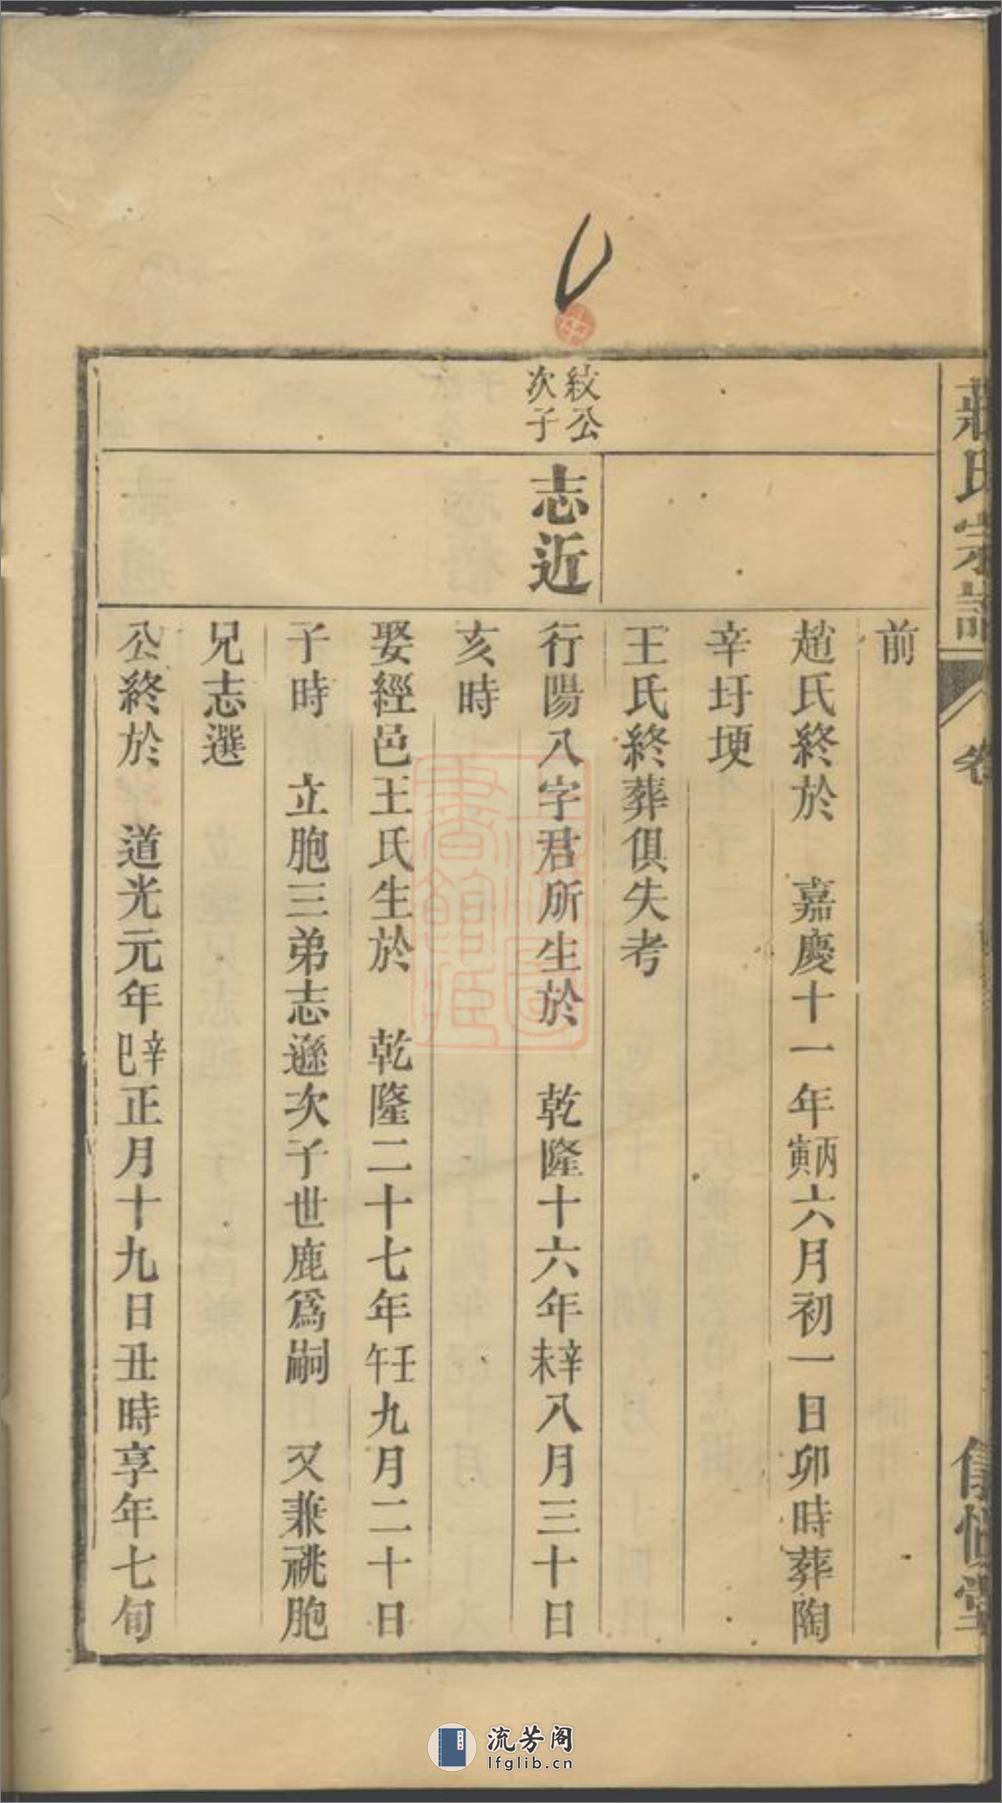 莊氏宗譜
卷
前
趙氏終於　嘉慶十一年丙寅六月初一日卯時葬陶
辛圩埂
王氏終葬俱失考
紋公
次子
志近
行陽八字君所生於　乾隆十六年辛未八月三十日
亥時
娶經邑王氏生於　乾隆二十七年壬午九月二十日
子時　立胞三弟志遜次子世鹿爲嗣　又兼祧胞
兄志選
公終於　道光元年辛巳正月十九日丑時享年七旬
流芳阁
lfglib.cn